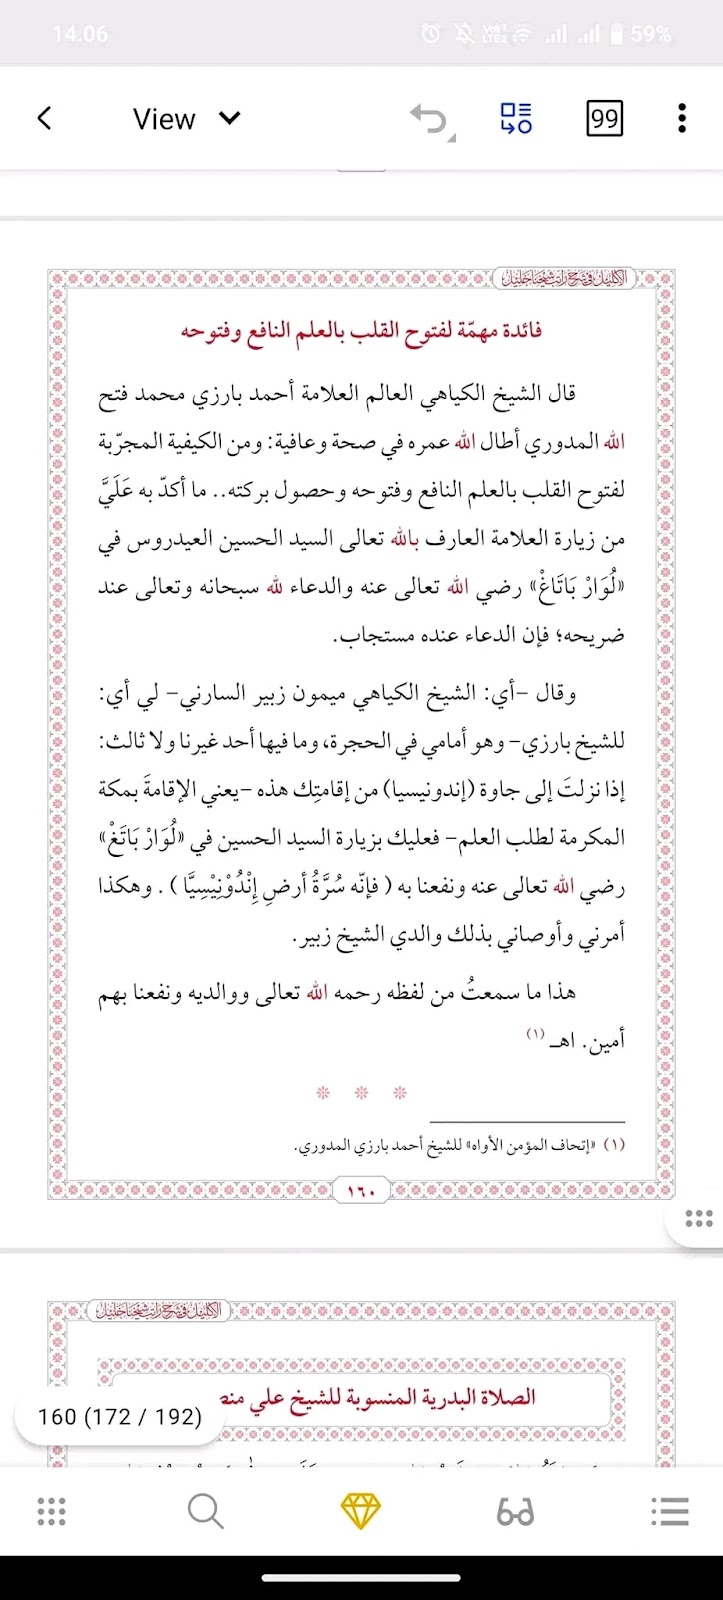 14.06
VoLTE LTE2 59%
View
99
الإكليل في شرح راتب شيخنا خليل
فائدة مهمّة لفتوح القلب بالعلم النافع وفتوحه
قال الشيخ الكياهي العالم العلامة أحمد بارزي محمد فتح
الله المدوري أطال الله عمره في صحة وعافية: ومن الكيفية المجرّبة
لفتوح القلب بالعلم النافع وفتوحه وحصول بركته.. ما أكدّ به عَلَيَّ
من زيارة العلامة العارف بالله تعالى السيد الحسين العيدروس في
«لُوَارْ بَاتَاغْ» رضي الله تعالى عنه والدعاء لله سبحانه وتعالى عند
ضريحه؛ فإن الدعاء عنده مستجاب.
وقال –أي: الشيخ الكياهي ميمون زبير السارني– لي أي:
للشيخ بارزي– وهو أمامي في الحجرة، وما فيها أحد غيرنا ولا ثالث:
إذا نزلتَ إلى جاوة (إندونيسيا) من إقامتِك هذه –يعني الإقامةَ بمكة
المكرمة لطلب العلم– فعليك بزيارة السيد الحسين في «لُوَارْ بَاتَغْ»
رضي الله تعالى عنه ونفعنا به ( فإنّه سُرَّةُ أرضِ إِنْدُوْنِيْسِيَّا ) . وهكذا
أمرني وأوصاني بذلك والدي الشيخ زبير.
هذا ما سمعتُ من لفظه رحمه الله تعالى ووالديه ونفعنا بهم
أمين. اهـ (١)
(١) «إتحاف المؤمن الأواه» للشيخ أحمد بارزي المدوري.
١٦٠
الإكليل في شرح راتب شيخنا خليل
الصلاة البدرية المنسوبة للشيخ علي
160 (172 / 192)